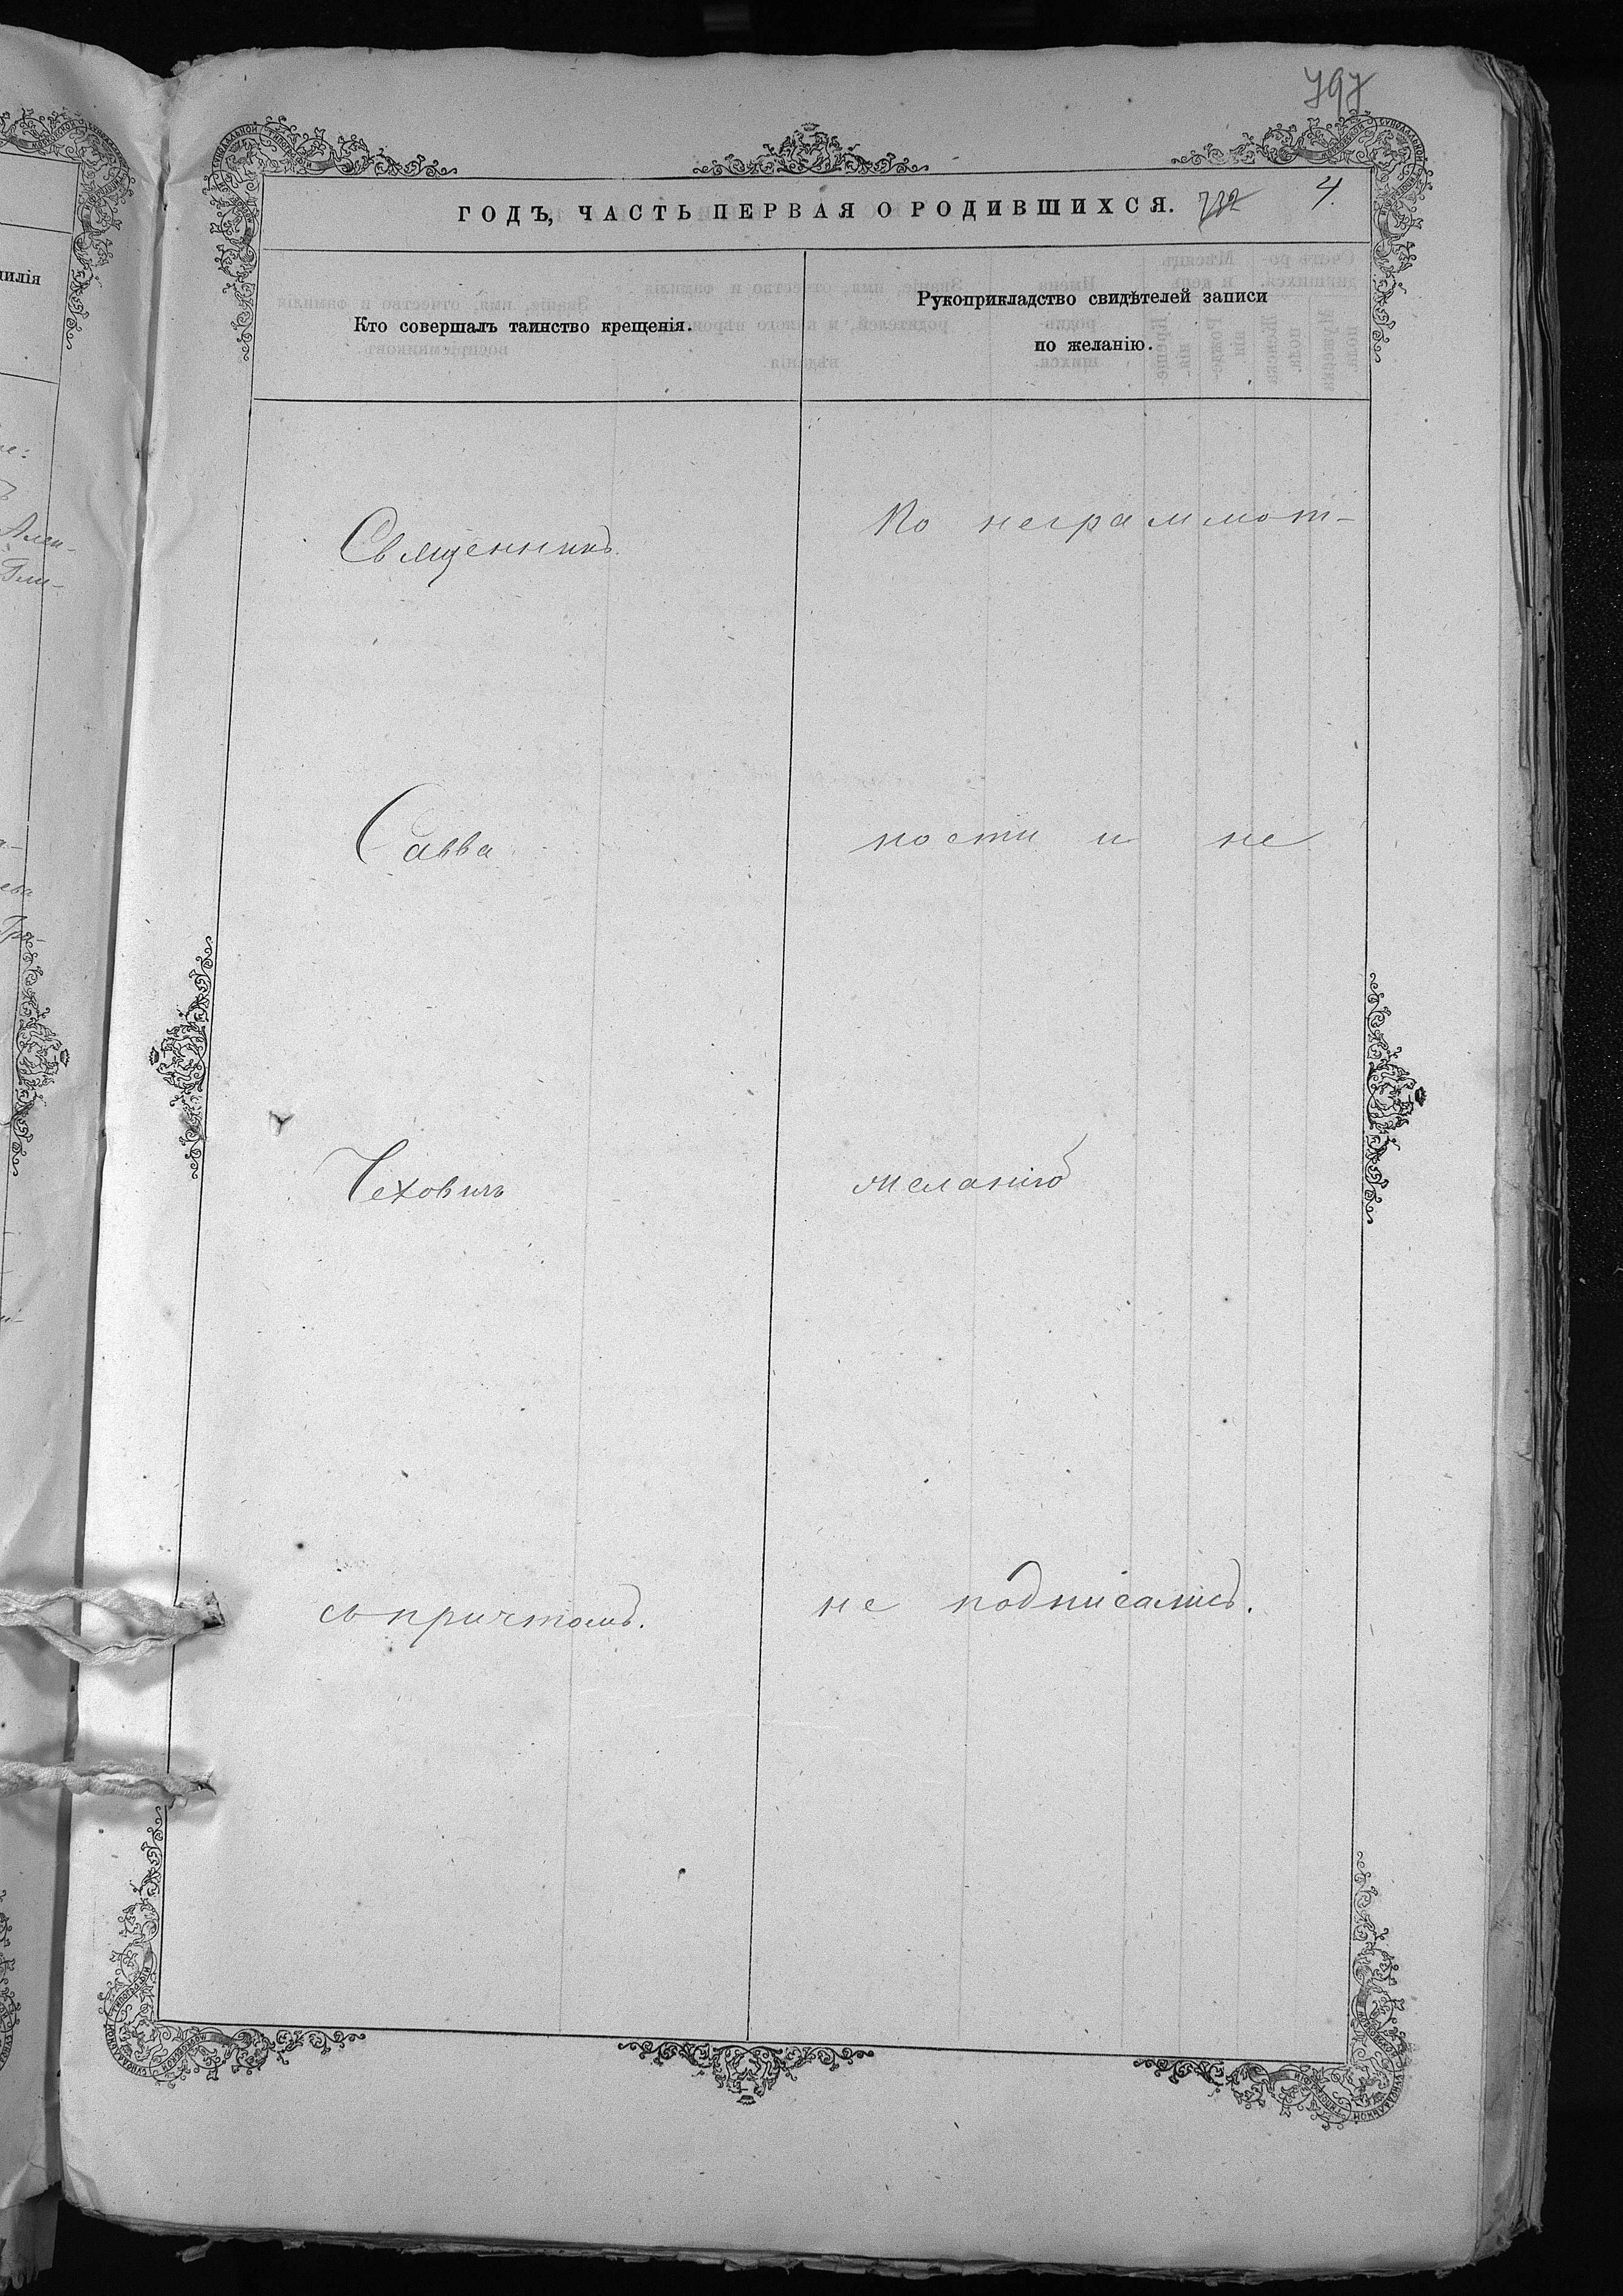 797
ГОДЪ, ЧАСТЬ ПЕРВАЯ О РОДИВШИХСЯ. 732 4.
илія
Кто совершалъ таинство крещенія.
Рукоприкладство свидѣтелей записи
по желанію.
Священникъ
По неграммот-
Савва
ности и не
Чеховичъ
желанію
съ причтомъ.
не подписались.